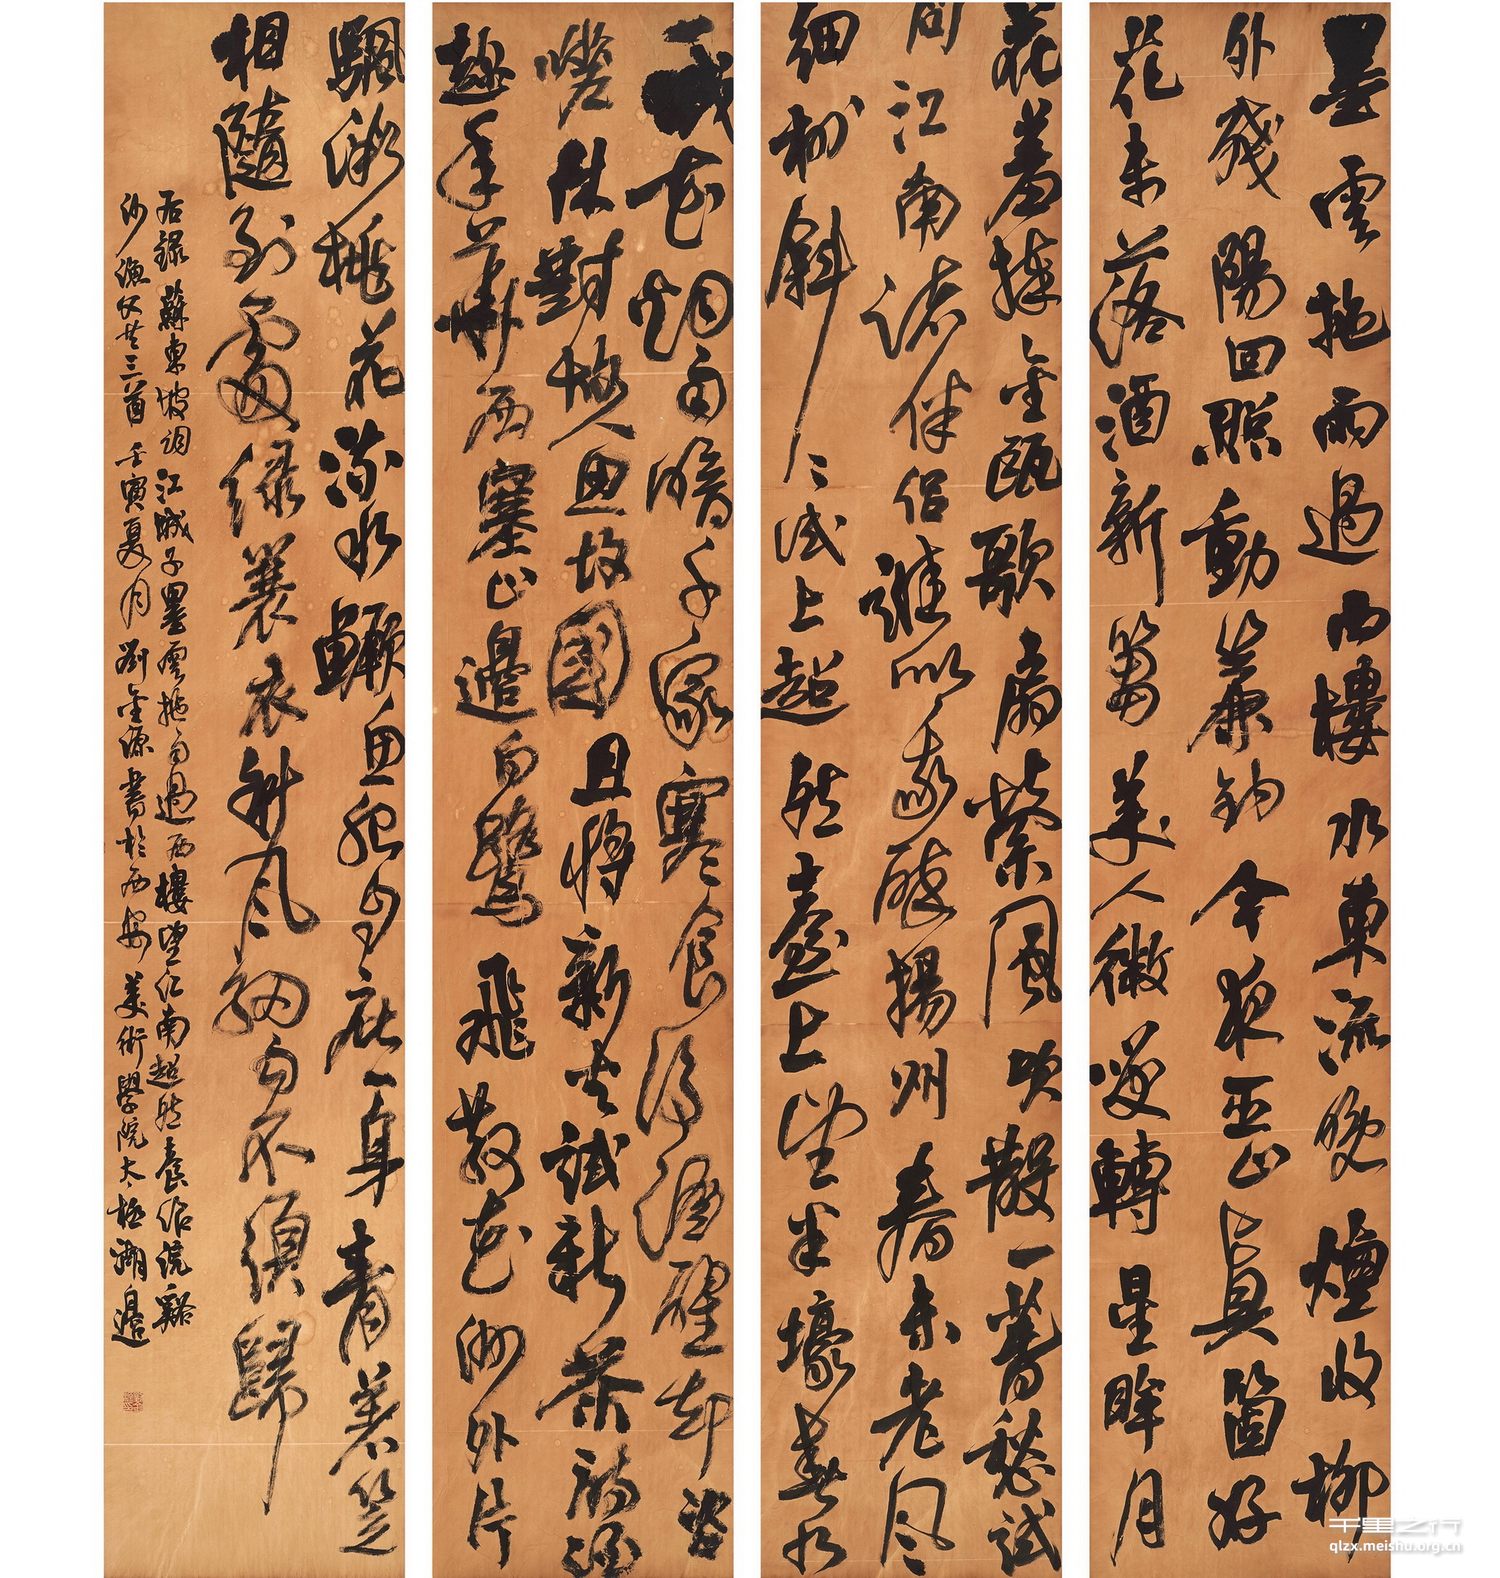 墨雲拖雨過西樓水東流晚煙收柳
外殘陽回照動簾鈎今夜巫山真箇好
花未落酒新篘美人微笑轉星眸月
花羞捧金甌歌扇縈風吹散一春愁試
問江南諸伴侶誰似我醉揚州春未老風
細柳斜斜試上超然臺上望半壕春水
一城花烟雨暗千家寒食後酒醒却咨
嗟休對故人思故國且將新火試新茶詩酒
趁年華西塞山邊白鷺飛散花洲外片
颿微桃花流水鱖魚肥自庇一身青蒻笠
相隨到處緑蓑衣斜風細雨不須歸
右録蘇東坡詞江城子墨雲拖雨過西樓望江南超然臺作浣谿
沙漁父共三首壬寅夏月劉金源書於西安美術學院太極湖邊
千里之行
qlzx.meishu.org.cn